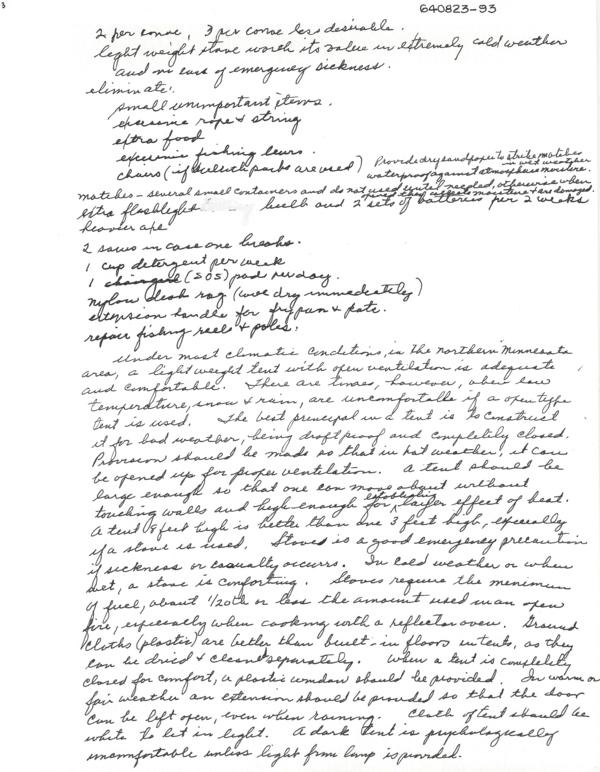 3
640823-93
2 per canoe, 3 per canoe less desirable.
light weight stove worth its value in extremely cold weather
and in case of emergency sickness.
eliminate:
small unimportant items.
excessive rope & string
extra food
excessive fishing lures.
chairs (if packs are used) Provide dry sandpaper to strike matches
in wet weather
waterproof against atmosphere moisture.
matches - several small containers and do not used until needed, otherwise when
opened they moisture & are damaged.
extra flashlight bulb and 2 sets of batteries per 2 weeks
heavier axe
2 saws in case one breaks.
1 cup detergent per week
1 (SOS) pad per day.
nylon dish rag (will dry immediately)
extension handle for fry pan & pots.
repair fishing reels & poles.
Under most climatic conditions, in the northern Minnesota
area, a light weight tent with open ventilation is adequate
and comfortable. There are times, however, when low
temperature, snow & rain, are uncomfortable if a open type
tent is used. The best principal in a tent is to construct
it for bad weather, being draft proof and completely closed.
Provision should be made so that in hot weather, it can
be opened up for proper ventilation. A tent should be
large enough so that one can move about without
establishing
touching walls and high enough for layer effect of heat.
A tent 8 feet high is better than one 3 feet high, especially
if a stove is used. Stoves is a good emergency precaution
if sickness or casualty occurrs. In cold weather or when
wet, a stove is comforting. Stoves require the minimum
of fuel, about 1/20th or less the amount used in an open
fire, especially when cooking with a reflector oven. Ground
cloths (plastic) are better than built-in floors in tents, as they
can be dried & cleaned separately. When a tent is completely
closed for comfort, a plastic window should be provided. In warm or
fair weather an extension should be provided so that the door
can be left open, even when raining. Cloth of tent should be
white to let in light. A dark tent is psychologically
uncomfortable unless light from lamp is provided.